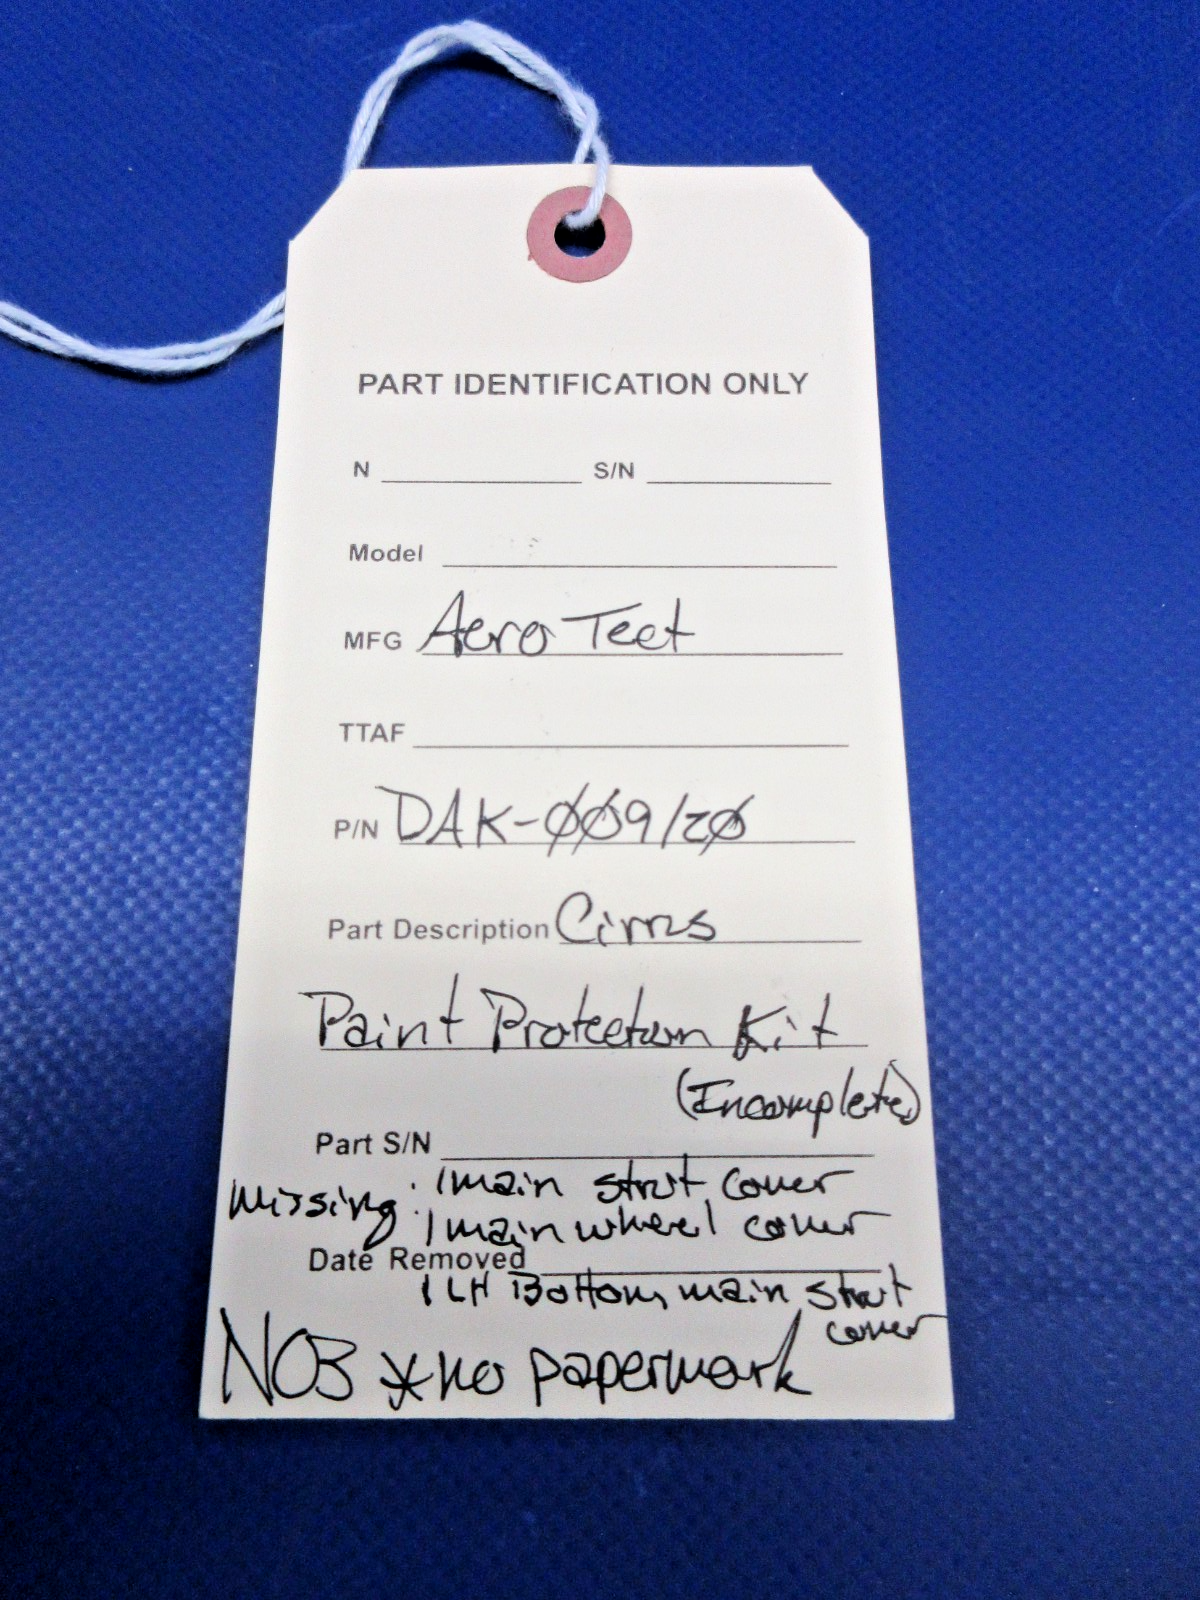 PART IDENTIFICATION ONLY
N S/N
Model
MFG Aero Tect
TTAF
P/N DAK-009/20
Part Description Cirrus
Paint Protection Kit
(Incomplete)
Part S/N
Missing: 1 main strut cover
1 main wheel cover
Date Removed
1 LH Bottom main strut
cover
NOB *no paperwork